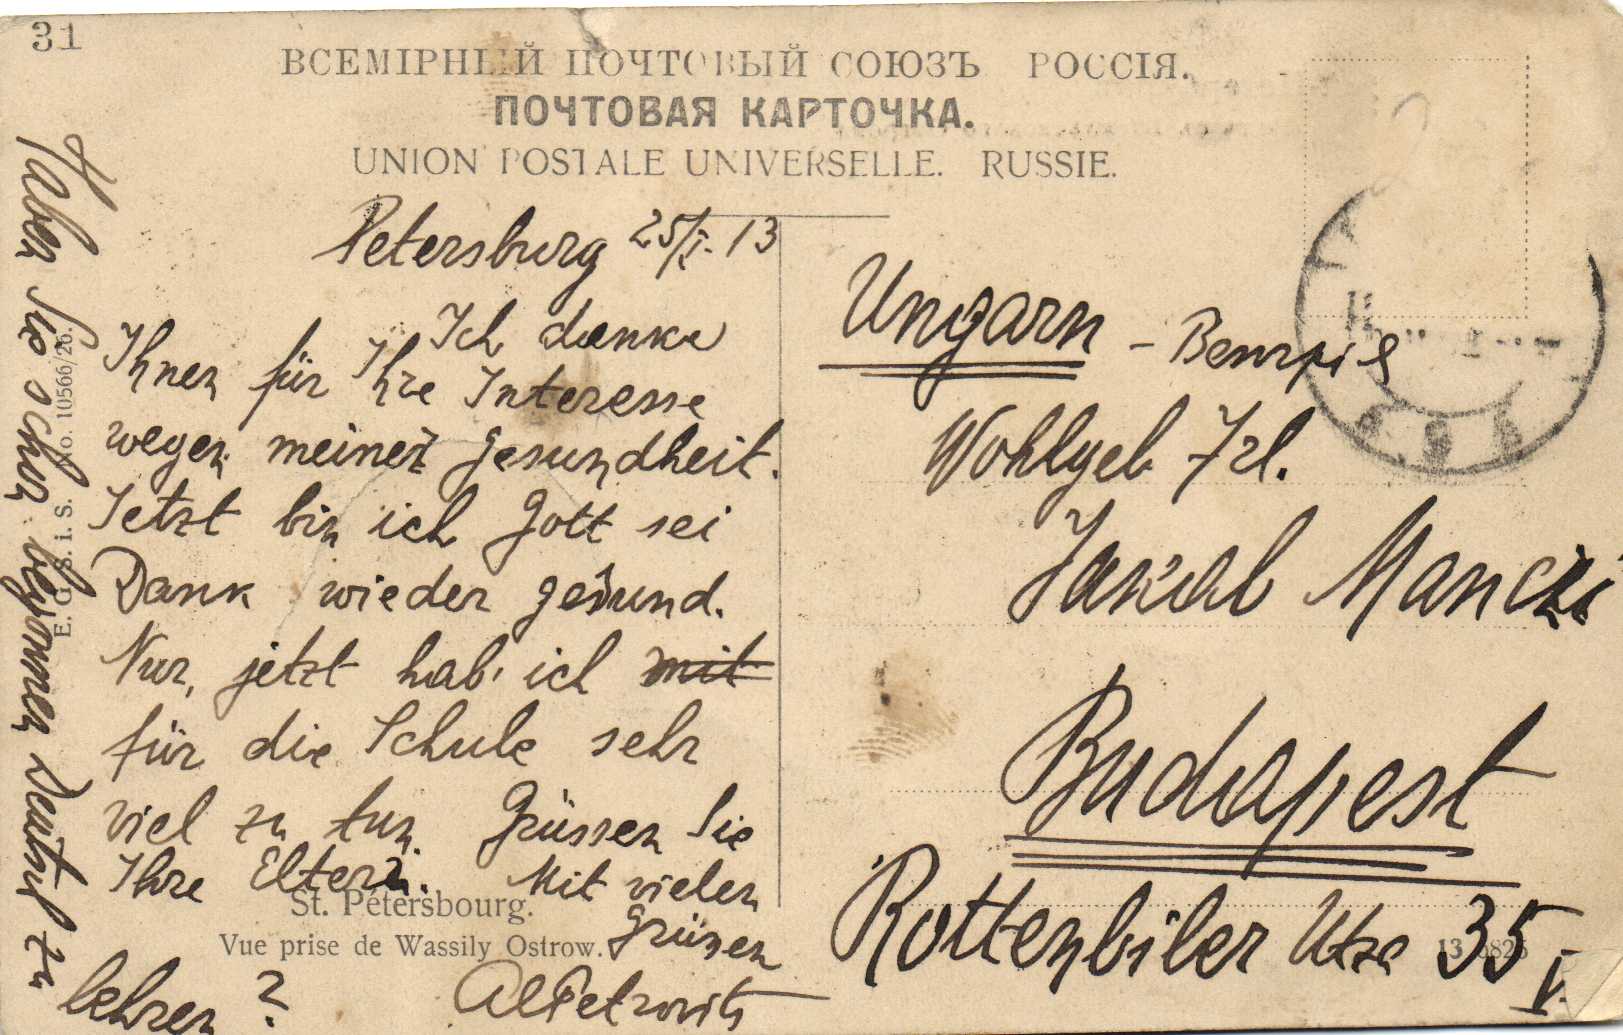 31
ВСЕМІРНЫЙ ПОЧТОВЫЙ СОЮЗЪ РОССІЯ.
ПОЧТОВАЯ КАРТОЧКА.
UNION POSTALE UNIVERSELLE. RUSSIE.
Petersburg 25/I. 13
Ich danke
Ihnen für Ihre Interesse
wegen meiner gesundheit.
Jetzt bin ich Gott sei
Dank wieder gesund.
Nur, jetzt hab' ich mit
für die Schule sehr
viel zu tun. Grüssen Sie
Ihre Eltern. Mit vielen
Grüssen
AlPetrovits
Haben Sie schon begonnen Deutsch zu
lehren?
E. G. S. i. S. No. 10566/26.
St. Pétersbourg.
Vue prise de Wassily Ostrow.
Ungarn - Венгрія
Wohlgeb Frl.
Jakab Manczi
Budapest
Rottenbiler Utza 35
V.